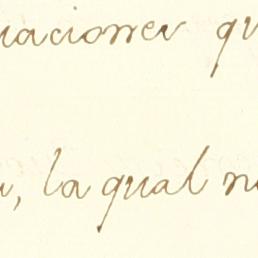 uaciones qu
a, la qual n